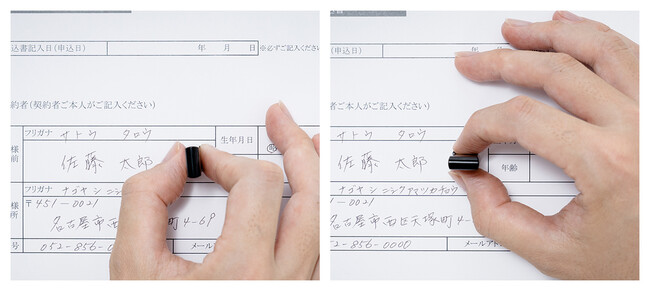 込書記入日(申込日) 年 月 日 ※必ずご記入ください
約者(契約者ご本人がご記入ください)
フリガナ サトウ タロウ 生年月日
様
前 佐藤 太郎
フリガナ ナゴヤシ ニシ
様
所 〒451-0021
名古屋市西 町4-69
号 052-856-0 メール
(申込日) 年 ださい
ご本人がご記入ください)
サトウ タロウ
佐藤 太郎 年齢
ナゴヤシ ニシクアマツカチョウ
1-0021
名古屋市西区天塚町4-
2-856-0000 メールアド